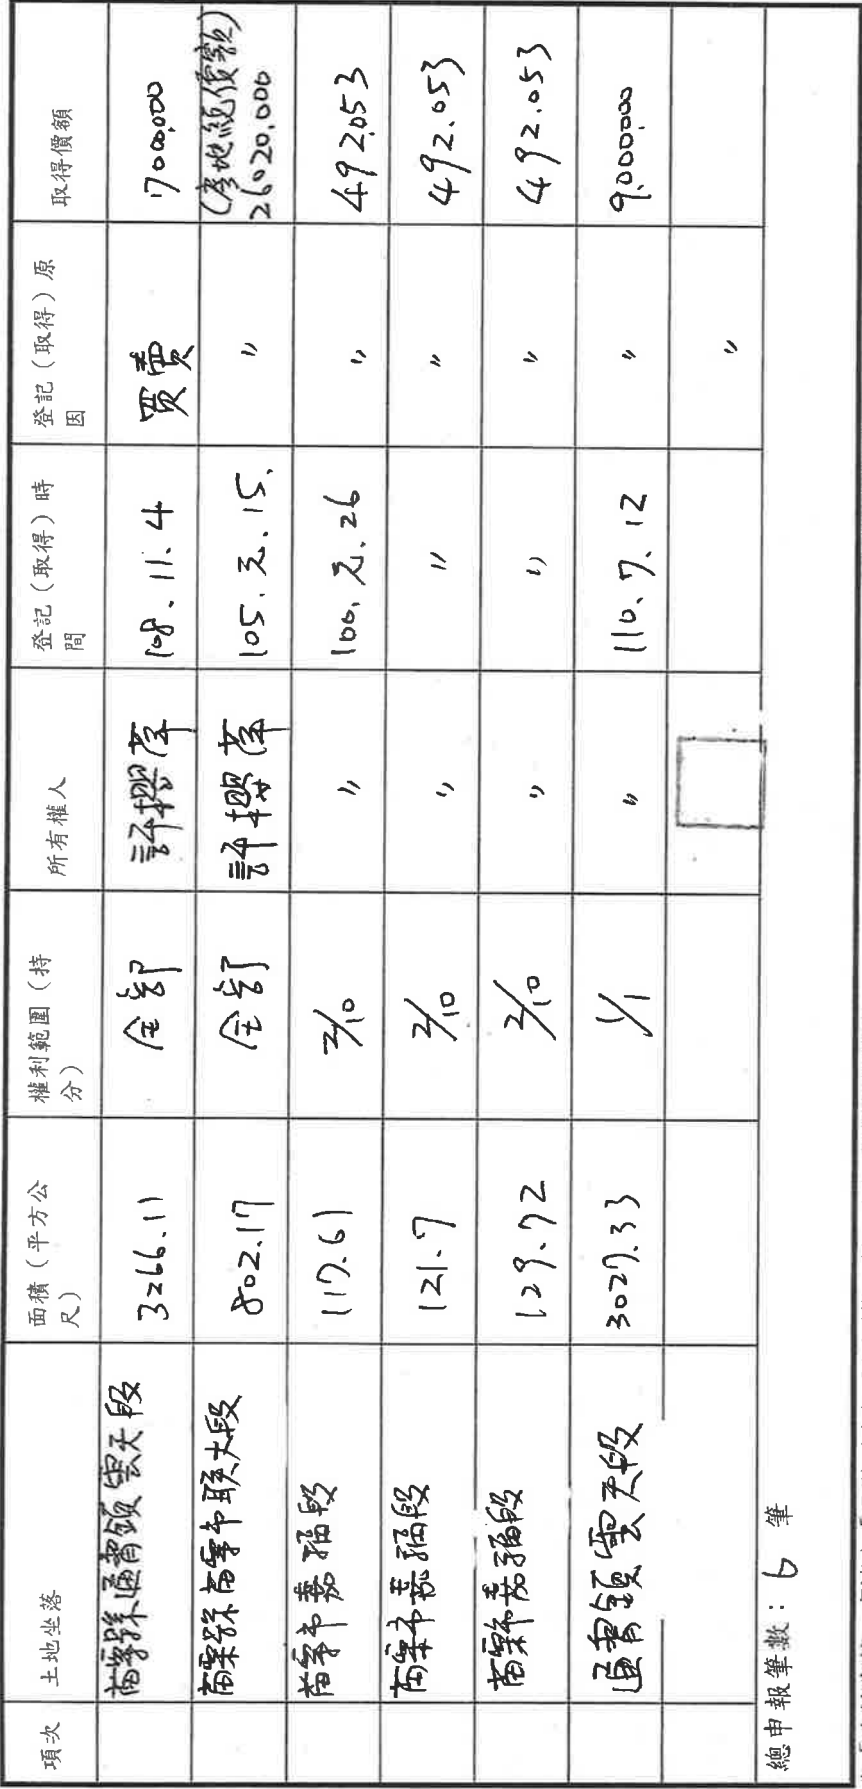 項次 土地坐落 面積（平方公尺） 權利範圍（持分） 所有權人 登記（取得）時間 登記（取得）原因 取得價額
苗栗縣通霄鎮雲天段 3266.11 全部 許櫻萍 108.11.4 買賣 7000,000
苗栗縣苗栗市联大段 802.17 全部 許櫻萍 105.元.15. 〃 (房地總價額) 26020,000
苗栗市嘉福段 117.61 2/10 〃 100.元.26 〃 492,053
苗栗市嘉福段 121.7 2/10 〃 〃 〃 492.053
苗栗市嘉福段 129.72 2/10 〃 〃 〃 492.053
通霄鎮雲天段 3027.33 1/1 〃 110.7.12 〃 9,000,000
〃
總申報筆數：6 筆